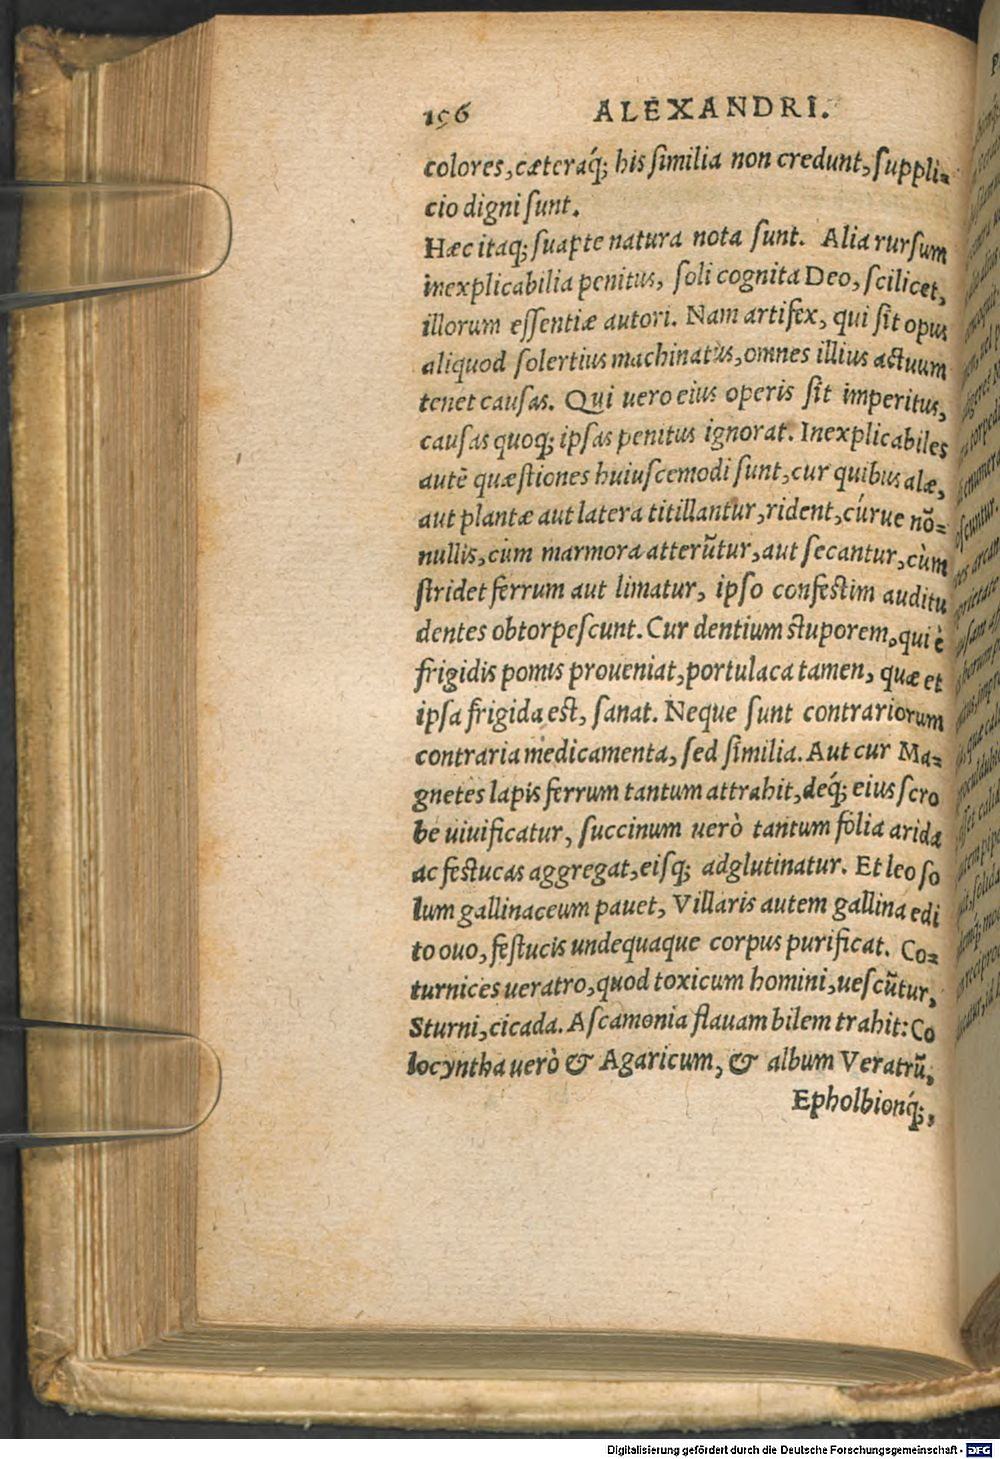 196 ALEXANDRI.
colores, cæteraq́; his ſimilia non credunt, ſuppli-
cio digni ſunt.
Hæc itaq; ſuapte natura nota ſunt. Alia rurſum
inexplicabilia penitus, ſoli cognita Deo, ſcilicet,
illorum eſſentiæ autori. Nam artifex, qui ſit opus
aliquod ſolertius machinatus, omnes illius actuum
tenet cauſas. Qui uero eius operis ſit imperitus,
cauſas quoq; ipſas penitus ignorat. Inexplicabiles
autē quæſtiones huiuſcemodi ſunt, cur quibus alæ,
aut plantæ aut latera titillantur, rident, cúrue nō-
nullis, cum marmora atterūtur, aut ſecantur, cùm
ſtridet ferrum aut limatur, ipſo confeſtim auditu
dentes obtorpeſcunt. Cur dentium ſtuporem, qui è
frigidis pomis proueniat, portulaca tamen, quæ et
ipſa frigida eſt, ſanat. Neque ſunt contrariorum
contraria medicamenta, ſed ſimilia. Aut cur Ma-
gnetes lapis ferrum tantum attrahit, deq́; eius ſcro
be uiuificatur, ſuccinum uerò tantum folia arida
ac feſtucas aggregat, eiſq; adglutinatur. Et leo ſo
lum gallinaceum pauet, Villaris autem gallina edi
to ouo, feſtucis undequaque corpus purificat. Co-
turnices ueratro, quod toxicum homini, ueſcūtur,
Sturni, cicada. A ſcamonia flauam bilem trahit: Co
locyntha uerò & Agaricum, & album Veratrū,
Epholbionq́;,
Digitalisierung gefördert durch die Deutsche Forschungsgemeinschaft - DFG